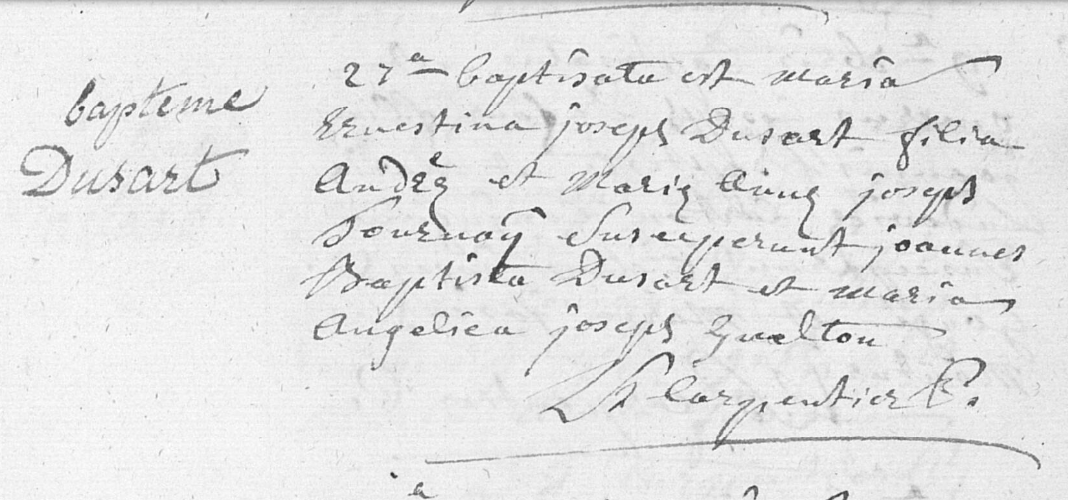 bapteme
Dusart
27a baptisata est maria
Ernestina joseph Dusart filia
Andreę et Marię Annę joseph
Tournaÿ Susceperunt joannes
Baptista Dusart et maria
Angelica joseph Gualton
Carpentier